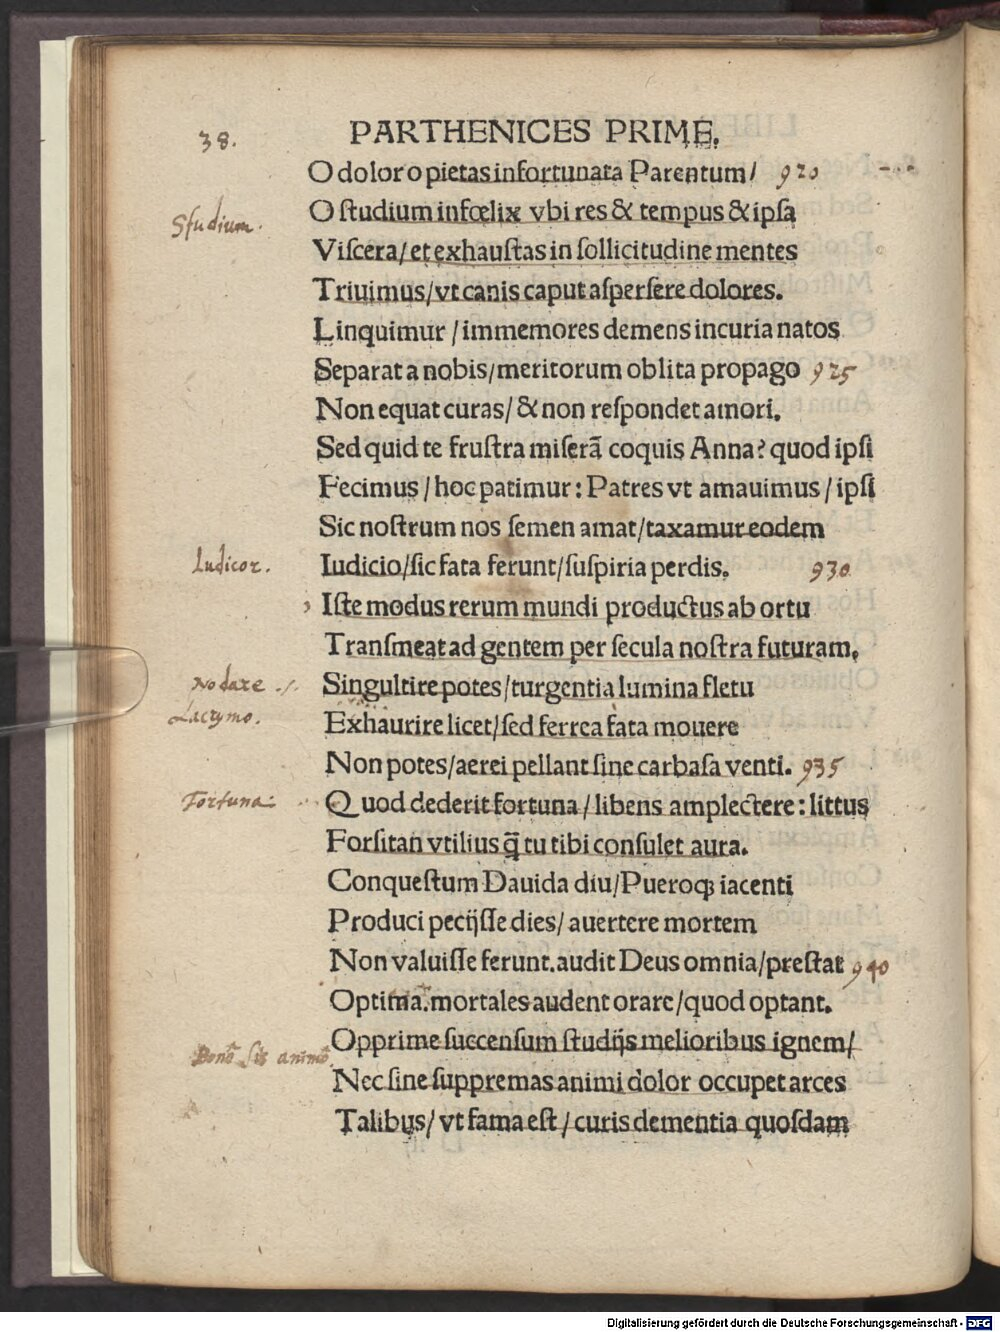 38. PARTHENICES PRIME.
O dolor o pietas infortunata Parentum/ 920
Studium. O ſtudium infœlix vbi res & tempus & ipſa
Viſcera/et exhauſtas in ſollicitudine mentes
Triuimus/vt canis caput aſperſere dolores.
Linquimur/immemores demens incuria natos
Separat a nobis/meritorum oblita propago 925
Non equat curas/& non reſpondet amori.
Sed quid te fruſtra miſerā coquis Anna? quod ipſi
Fecimus/hoc patimur: Patres vt amauimus/ipſi
Sic noſtrum nos ſemen amat/taxamur eodem
Iudicor. Iudicio/ſic fata ferunt/ſuſpiria perdis. 930
Iſte modus rerum mundi productus ab ortu
Tranſmeat ad gentem per ſecula noſtra futuram.
Singultire potes/turgentia lumina fletu
Lacrymo. Exhaurire licet/ſed ferrea fata mouere
Non potes/aerei pellant ſine carbaſa venti. 935
Fortuna. Quod dederit fortuna/libens amplectere: littus
Forſitan vtilius q̄ tu tibi conſulet aura.
Conqueſtum Dauida diu/Pueroqꝫ iacenti
Produci petijſſe dies/auertere mortem
Non valuiſſe ferunt. audit Deus omnia/preſtat 940
Optima. mortales audent orare/quod optant.
Bonō ſis animō Opprime ſuccenſum ſtudijs melioribus ignem/
Nec ſine ſuppremas animi dolor occupet arces
Talibus/vt fama eſt/curis dementia quoſdam
Digitalisierung gefördert durch die Deutsche Forschungsgemeinschaft - DFG